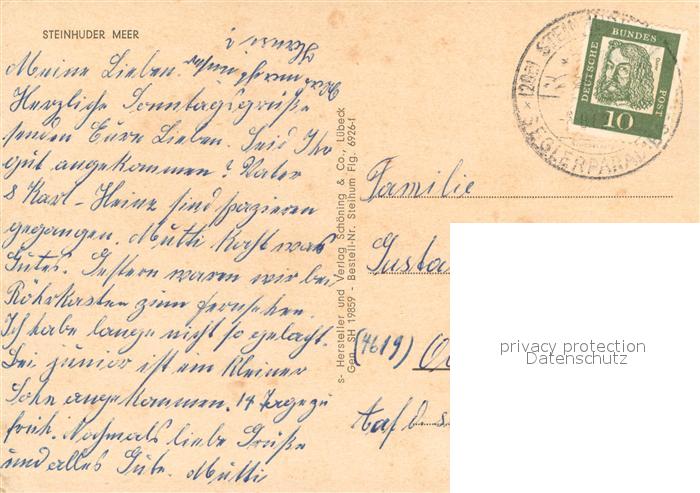 STEINHUDER MEER
Meine Lieben.
Herzliche Sonntagsgrüße
senden Eure Lieben. Seid Ihr
gut angekommen? Vater
& Karl-Heinz sind spazieren
gegangen. Mutti kocht was
Gutes. Gestern waren wir bei
Röhrkasten zum fernsehen.
Ich habe lange nicht so gelacht.
Bei junior ist ein kleiner
Sohn angekommen. 14 Tage zu
früh. Nochmals liebe Grüße
und alles Gute. Mutti
s- Hersteller und Verlag Schöning & Co., Lübeck
Gen. SH 19859 - Bestell-Nr. Steinhum Flg. 6926-1
DEUTSCHE BUNDESPOST
10
(20a) STEINHUDE
SEGLERPARADIES
Familie
Gusta
(4619)
privacy protection
Datenschutz